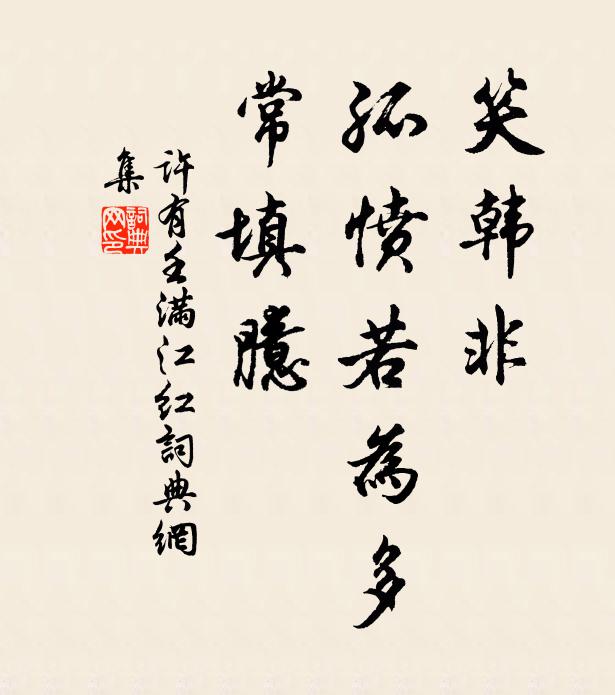 笑韩非
孤愤若為多
常填臆
许有壬满江红詞典網
集
詞典
网印